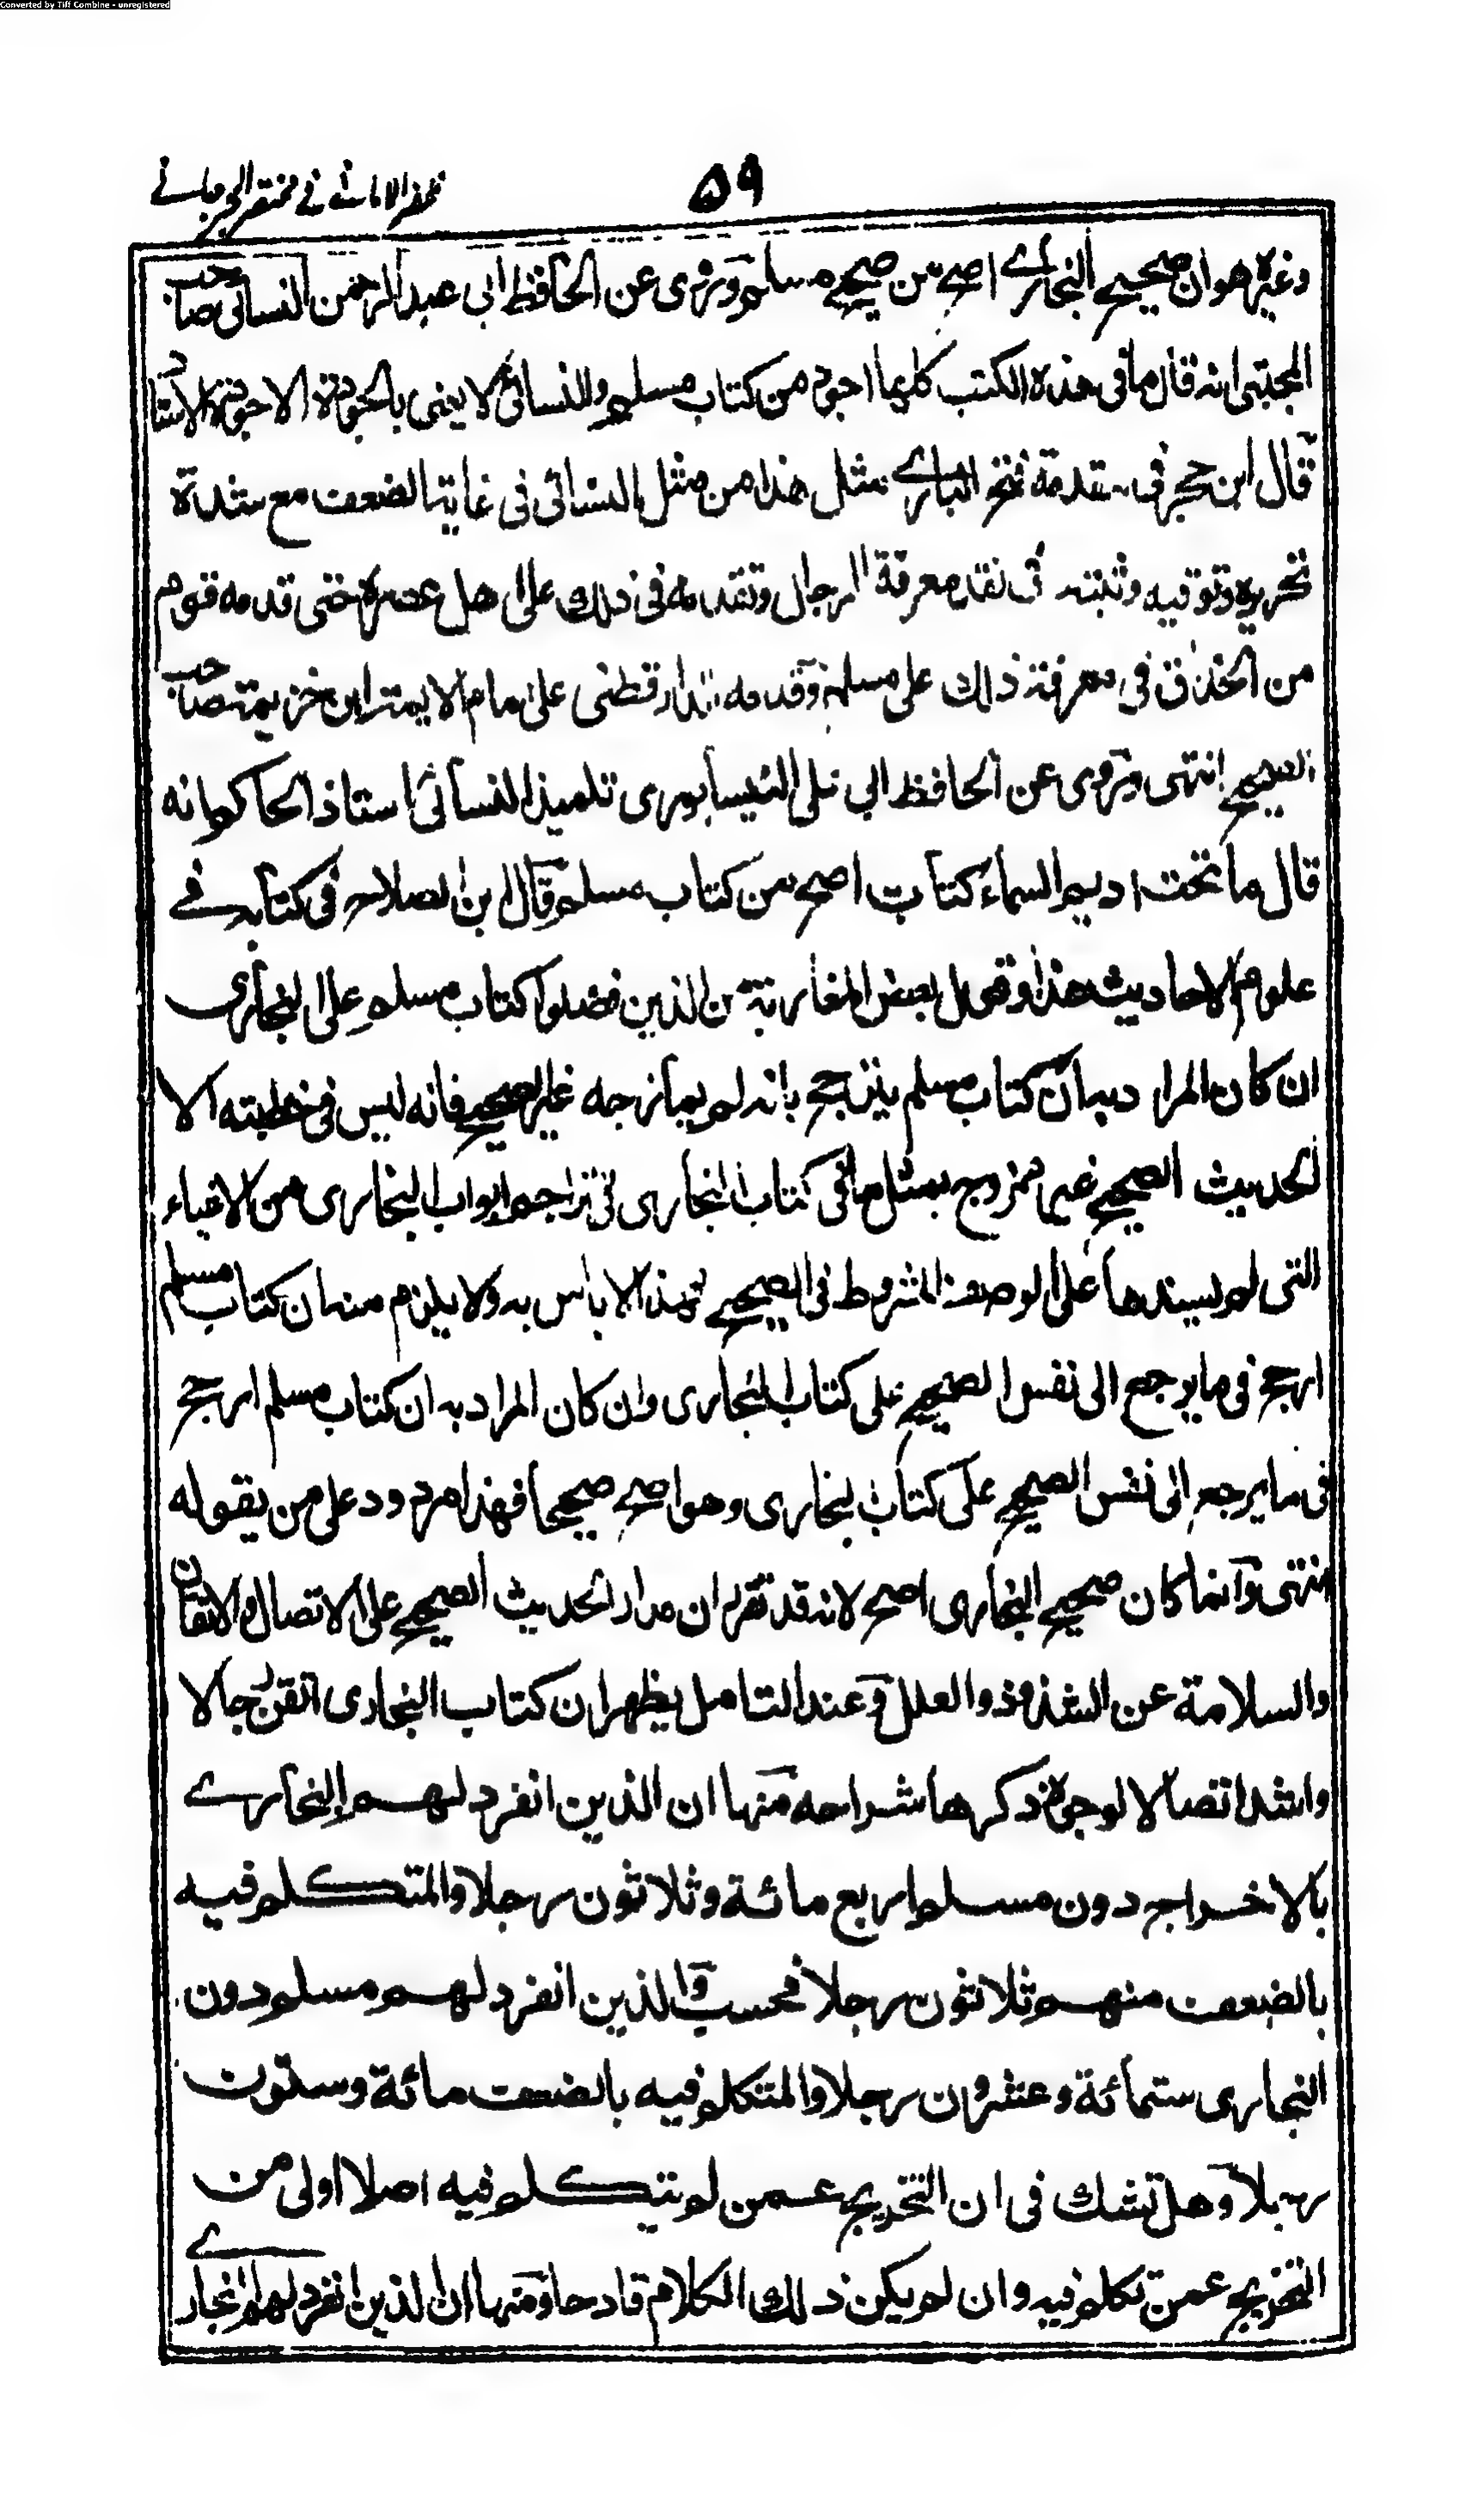 Converted by Tiff Combine - unregistered
٥٩
ظفر الامانی فی مختصر الجرجانے
وغيره هو ان صحيح البخارے اصح من صحيح مسلم وروى عن الحافظ ابى عبد الرحمن النسائى صاحب
المجتبى انه قال ما فى هذه الكتب كلها اجود من كتاب مسلم والنسائى لا يعنى بالجودة الا جودة الاسناد
قال ابن حجر فى مقدمة فتح البارے مثل هذا من مثل النسائى فى غاية الضعف مع شدة
تحريه وتوقيه وتثبته فى نقد معرفة الرجال وتقدمه فى ذلك على اهل عصره حتى قدمه قوم
من الحذاق فى معرفة ذلك على مسلم وقدمه الدارقطنى على امام الايمة ابن خزيمة صاحب
الصحيح انتهى وروى عن الحافظ ابى على النيسابورى تلميذ النسائى استاذ الحاكم انه
قال ما تحت اديم السماء كتاب اصح من كتاب مسلم وقال ابن الصلاح فى كتابه فے
علوم الاحاديث هذا وقول بعض المغاربة من الذين فضلوا كتاب مسلم على البخارى
ان كان المراد به ان كتاب مسلم يترجح بانه لم يمازجه غير الصحيح فانه ليس فى خطبته الا
الحديث الصحيح غير ممزوج بمثل ما فى كتاب البخارى فى تراجم ابواب البخارى من الاشياء
التى لم يسندها على الوصف المشروط فى الصحيح فهذا لا باس به ولا يلزم منه ان كتاب مسلم
ارجح فى ما يرجع الى نفس الصحيح على كتاب البخارى وان كان المراد به ان كتاب مسلم ارجح
فى ما يرجع الى نفس الصحيح على كتاب البخارى وهو اصح صحيحا فهذا مردود على من يقوله
انتهى وانما كان صحيح البخارى اصح لانه قد تقرر ان مدار الحديث الصحيح على الاتصال والاتقان
والسلامة عن الشذوذ والعلل وعند التامل يظهر ان كتاب البخارى اتقن رجالا
واشد اتصالا لوجوه ذكرها شراحه منها ان الذين انفرد لهم البخارے
بالاخراج دون مسلم اربع مائة وثلاثون رجلا والمتكلم فيه
بالضعف منهم ثلاثون رجلا فحسب والذين انفرد لهم مسلم دون
البخارى ستمائة وعشرون رجلا والمتكلم فيه بالضعف مائة وستون
رجلا وهل تشك فى ان التخريج عمن لم يتكلم فيه اصلا اولى من
التخريج عمن تكلم فيه وان لم يكن ذلك الكلام قادحا ومنها ان الذين انفرد لهم البخارے